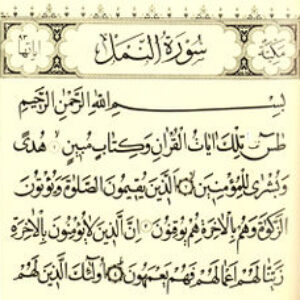 مكية
سورة النمل
آياتها ٩٣
بسم الله الرحمن الرحيم
طس تلك ايات القران وكتاب مبين ١ هدى
وبشرى للمؤمنين ٢ الذين يقيمون الصلوة ويؤتون
الزكوة وهم بالاخرة هم يوقنون ٣ ان الذين لا يؤمنون بالاخرة
زينا لهم اعمالهم فهم يعمهون ٤ اولئك الذين لهم